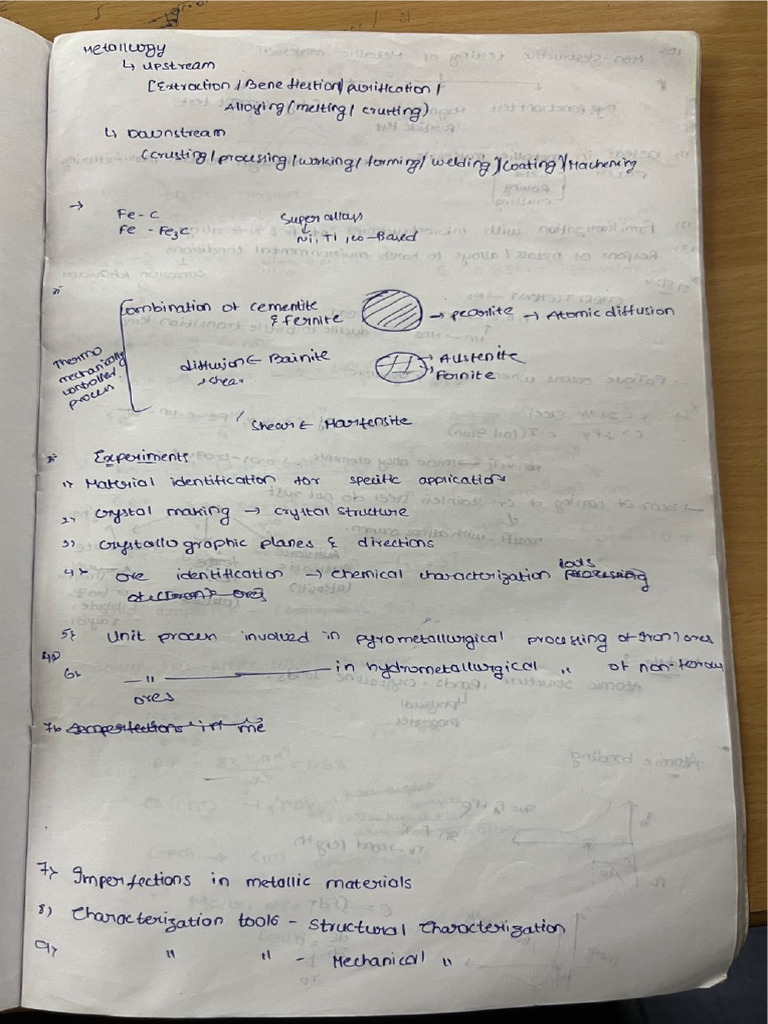 Metallurgy
↳ upstream
[Extraction / Beneflection / purification /
Alloying (melting / crusting)
↳ Downstream
(crusting / processing / working / forming / welding) / coating) / Machening
→
Fe-C
Fe - Fe3C
Super alloys
↓
Ni, Ti, co-Based
Combination of cementite
& ferrite
→ pearlite → Atomic diffusion
Thermo
mechanically
controlled
process
diffusion ← Bainite
shear
→ Austenite
→ Ferrite
Shear ← Martensite
Experiments
1) Material identification for specific application
2) crystal making → crystal structure
3) crystallographic planes & directions
4) ore identification → chemical characterization
ores
5) Unit process involved in pyrometallurgical processing of Iron ores
6) — " — in hydrometallurgical " of non-ferrous
ores
7) Imperfections in me
7) Imperfections in metallic materials
8) Characterization tools - structural characterization
9) " " - Mechanical "